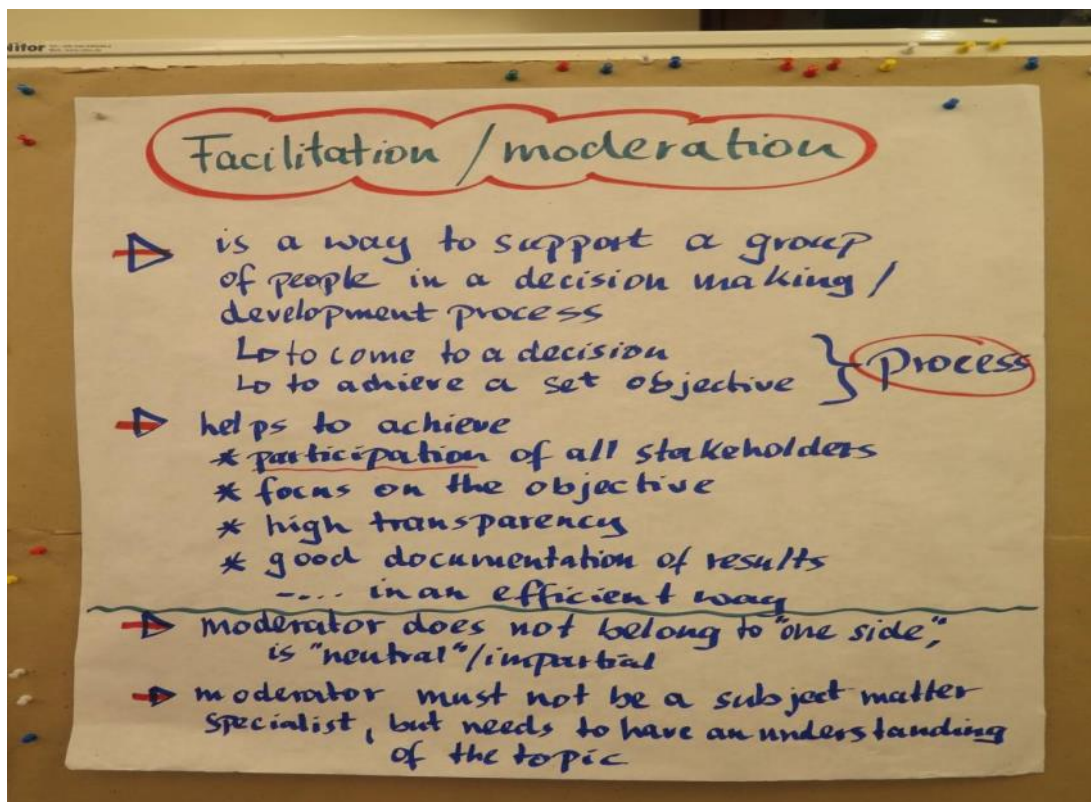 Facilitation / moderation
is a way to support a group
of people in a decision making /
development process
↳ to come to a decision
↳ to achieve a set objective } Process
helps to achieve
* participation of all stakeholders
* focus on the objective
* high transparency
* good documentation of results
-.... in an efficient way
moderator does not belong to "one side",
is "neutral"/impartial
moderator must not be a subject matter
specialist, but needs to have an understanding
of the topic